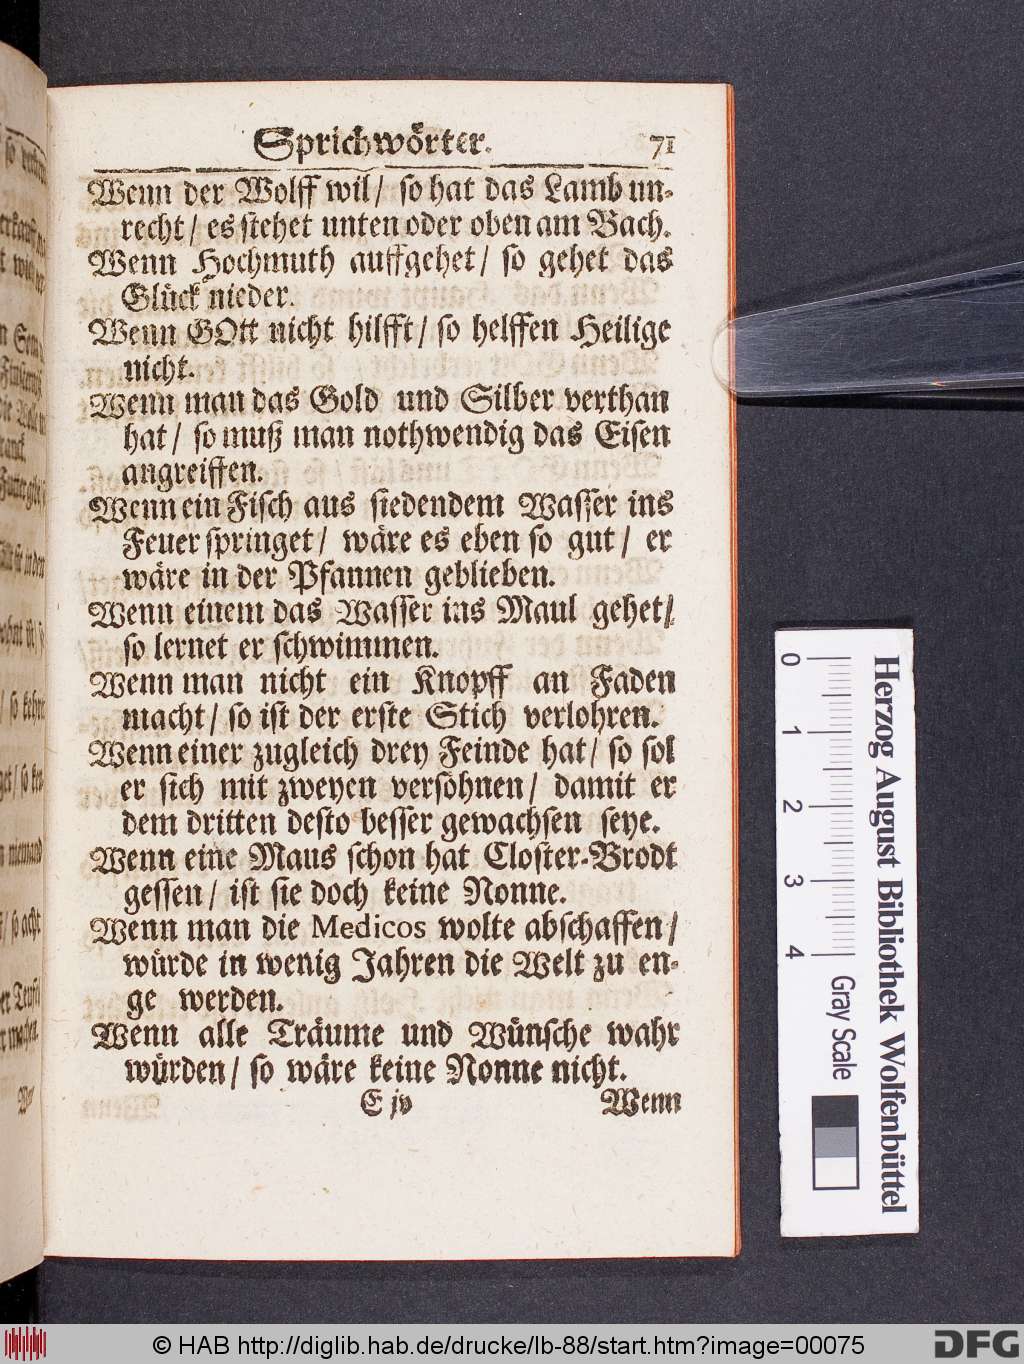 Sprichwörter. 71
Wenn der Wolff wil / so hat das Lamb un-
recht / es stehet unten oder oben am Bach.
Wenn Hochmuth auffgehet / so gehet das
Glück nieder.
Wenn GOtt nicht hilfft / so helffen Heilige
nicht.
Wenn man das Gold und Silber verthan
hat / so muß man nothwendig das Eisen
angreiffen.
Wenn ein Fisch aus siedendem Wasser ins
Feuer springet / wäre es eben so gut / er
wäre in der Pfannen geblieben.
Wenn einem das Wasser ins Maul gehet /
so lernet er schwimmen.
Wenn man nicht ein Knopff an Faden
macht / so ist der erste Stich verlohren.
Wenn einer zugleich drey Feinde hat / so sol
er sich mit zweyen versohnen / damit er
dem dritten desto besser gewachsen seye.
Wenn eine Maus schon hat Closter-Brodt
gessen / ist sie doch keine Nonne.
Wenn man die Medicos wolte abschaffen /
würde in wenig Jahren die Welt zu en-
ge werden.
Wenn alle Träume und Wünsche wahr
würden / so wäre keine Nonne nicht.
E jv Wenn
Herzog August Bibliothek Wolfenbüttel
0 1 2 3 4
Gray Scale
© HAB http://diglib.hab.de/drucke/lb-88/start.htm?image=00075
DFG